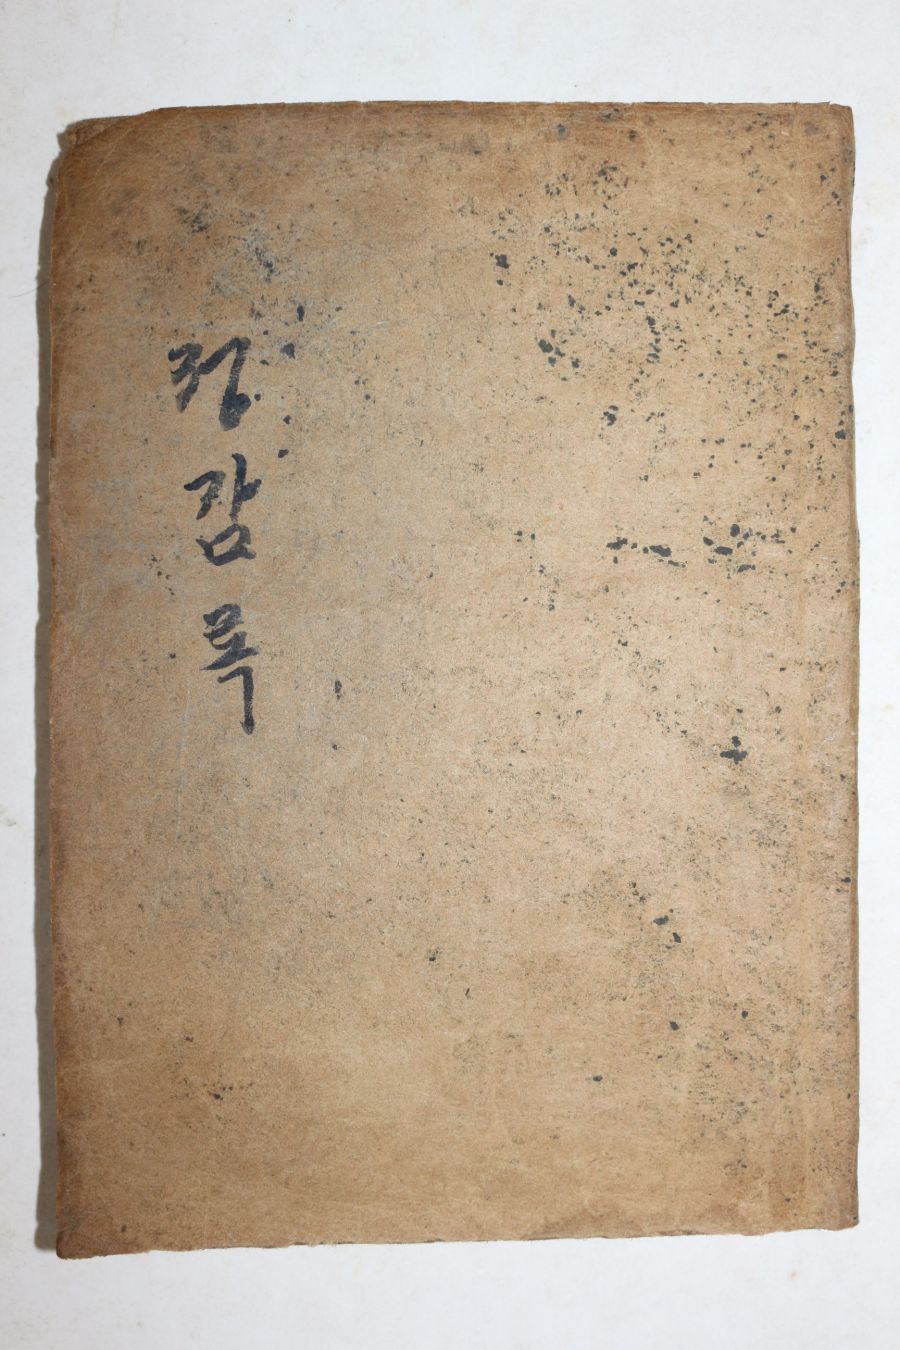 정감록